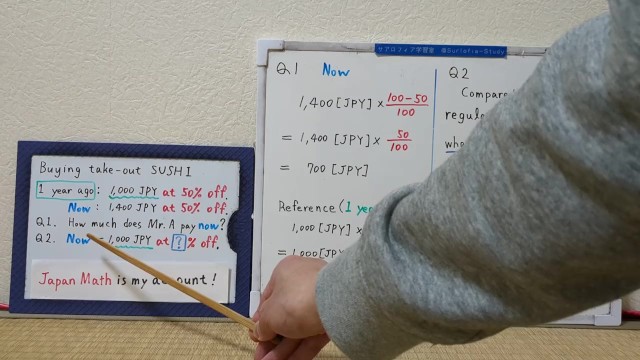 Buying take-out SUSHI
1 year ago: 1,000 JPY at 50% off.
Now: 1,400 JPY at 50% off.
Q1. How much does Mr. A pay now?
Q2. Now = 1,000 JPY at ? % off.
Japan Math is my account!
Q1 Now
1,400 [JPY] × 100-50/100
= 1,400 [JPY] × 50/100
= 700 [JPY]
Reference (1 ye
1,000 [JPY] ×
= 1,000 [JPY
Q2
Compare
regul
whe